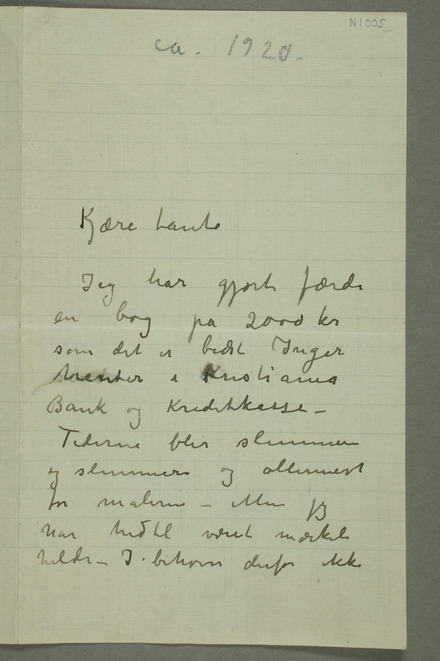 N1005
ca. 1920.
Kjære tante
Jeg har gjort færdi
en bog på 2000 kr
som det er bedst Inger
henter i Kristiania
Bank og Kreditkasse –
Tiderne blir slimmere
og slimmere og allermest
for malerne – Men jeg
har hidtil været mærkelig
heldi – I behøver derfor ikke